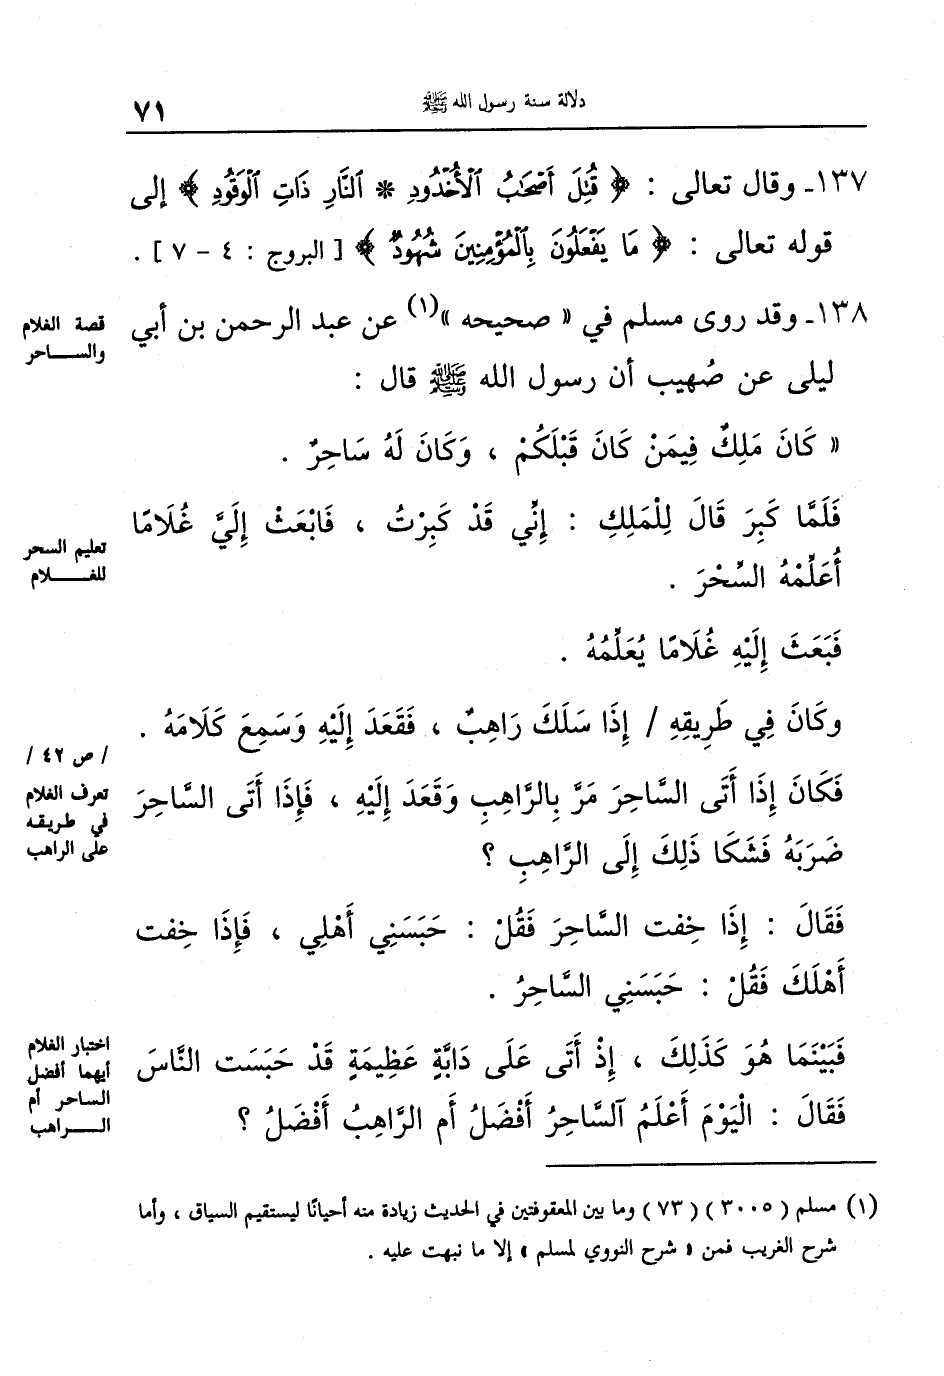 دلالة سنة رسول الله ﷺ
٧١
١٣٧ـ وقال تعالى : ﴿ قُتِلَ أَصْحَٰبُ ٱلْأُخْدُودِ * ٱلنَّارِ ذَاتِ ٱلْوَقُودِ ﴾ إلى
قوله تعالى : ﴿ مَا يَفْعَلُونَ بِٱلْمُؤْمِنِينَ شُهُودٌ ﴾ [ البروج : ٤ - ٧ ] .
١٣٨ـ وقد روى مسلم في « صحيحه »(١) عن عبد الرحمن بن أبي
قصة الغلام
والساحر
ليلى عن صُهيب أن رسول الله ﷺ قال :
« كَانَ مَلِكٌ فِيمَنْ كَانَ قَبْلَكُمْ ، وَكَانَ لَهُ سَاحِرٌ .
فَلَمَّا كَبِرَ قَالَ لِلْمَلِكِ : إِنِّي قَدْ كَبِرْتُ ، فَابْعَثْ إِلَيَّ غُلَامًا
تعليم السحر
للغلام
أُعَلِّمْهُ السِّحْرَ .
فَبَعَثَ إِلَيْهِ غُلَامًا يُعَلِّمُهُ .
وكَانَ فِي طَرِيقِهِ / إِذَا سَلَكَ رَاهِبٌ ، فَقَعَدَ إِلَيْهِ وَسَمِعَ كَلَامَهُ .
/ ص ٤٢ /
فَكَانَ إِذَا أَتَى السَّاحِرَ مَرَّ بِالرَّاهِبِ وَقَعَدَ إِلَيْهِ ، فَإِذَا أَتَى السَّاحِرَ
تعرف الغلام
في طريقه
على الراهب
ضَرَبَهُ فَشَكَا ذَلِكَ إِلَى الرَّاهِبِ ؟
فَقَالَ : إِذَا خِفت السَّاحِرَ فَقُلْ : حَبَسَنِي أَهْلِي ، فَإِذَا خِفت
أَهْلَكَ فَقُلْ : حَبَسَنِي السَّاحِرُ .
فَبَيْنَمَا هُوَ كَذَلِكَ ، إِذْ أَتَى عَلَى دَابَّةٍ عَظِيمَةٍ قَدْ حَبَسَت النَّاسَ
اختبار الغلام
أيهما أفضل
الساحر أم
الراهب
فَقَالَ : الْيَوْمَ أَعْلَمُ آلسَّاحِرُ أَفْضَلُ أَم الرَّاهِبُ أَفْضَلُ ؟
(١) مسلم ( ٣٠٠٥ ) ( ٧٣ ) وما بين المعقوفتين في الحديث زيادة منه أحيانًا ليستقيم السياق ، وأما
شرح الغريب فمن « شرح النووي لمسلم » إلا ما نبهت عليه .